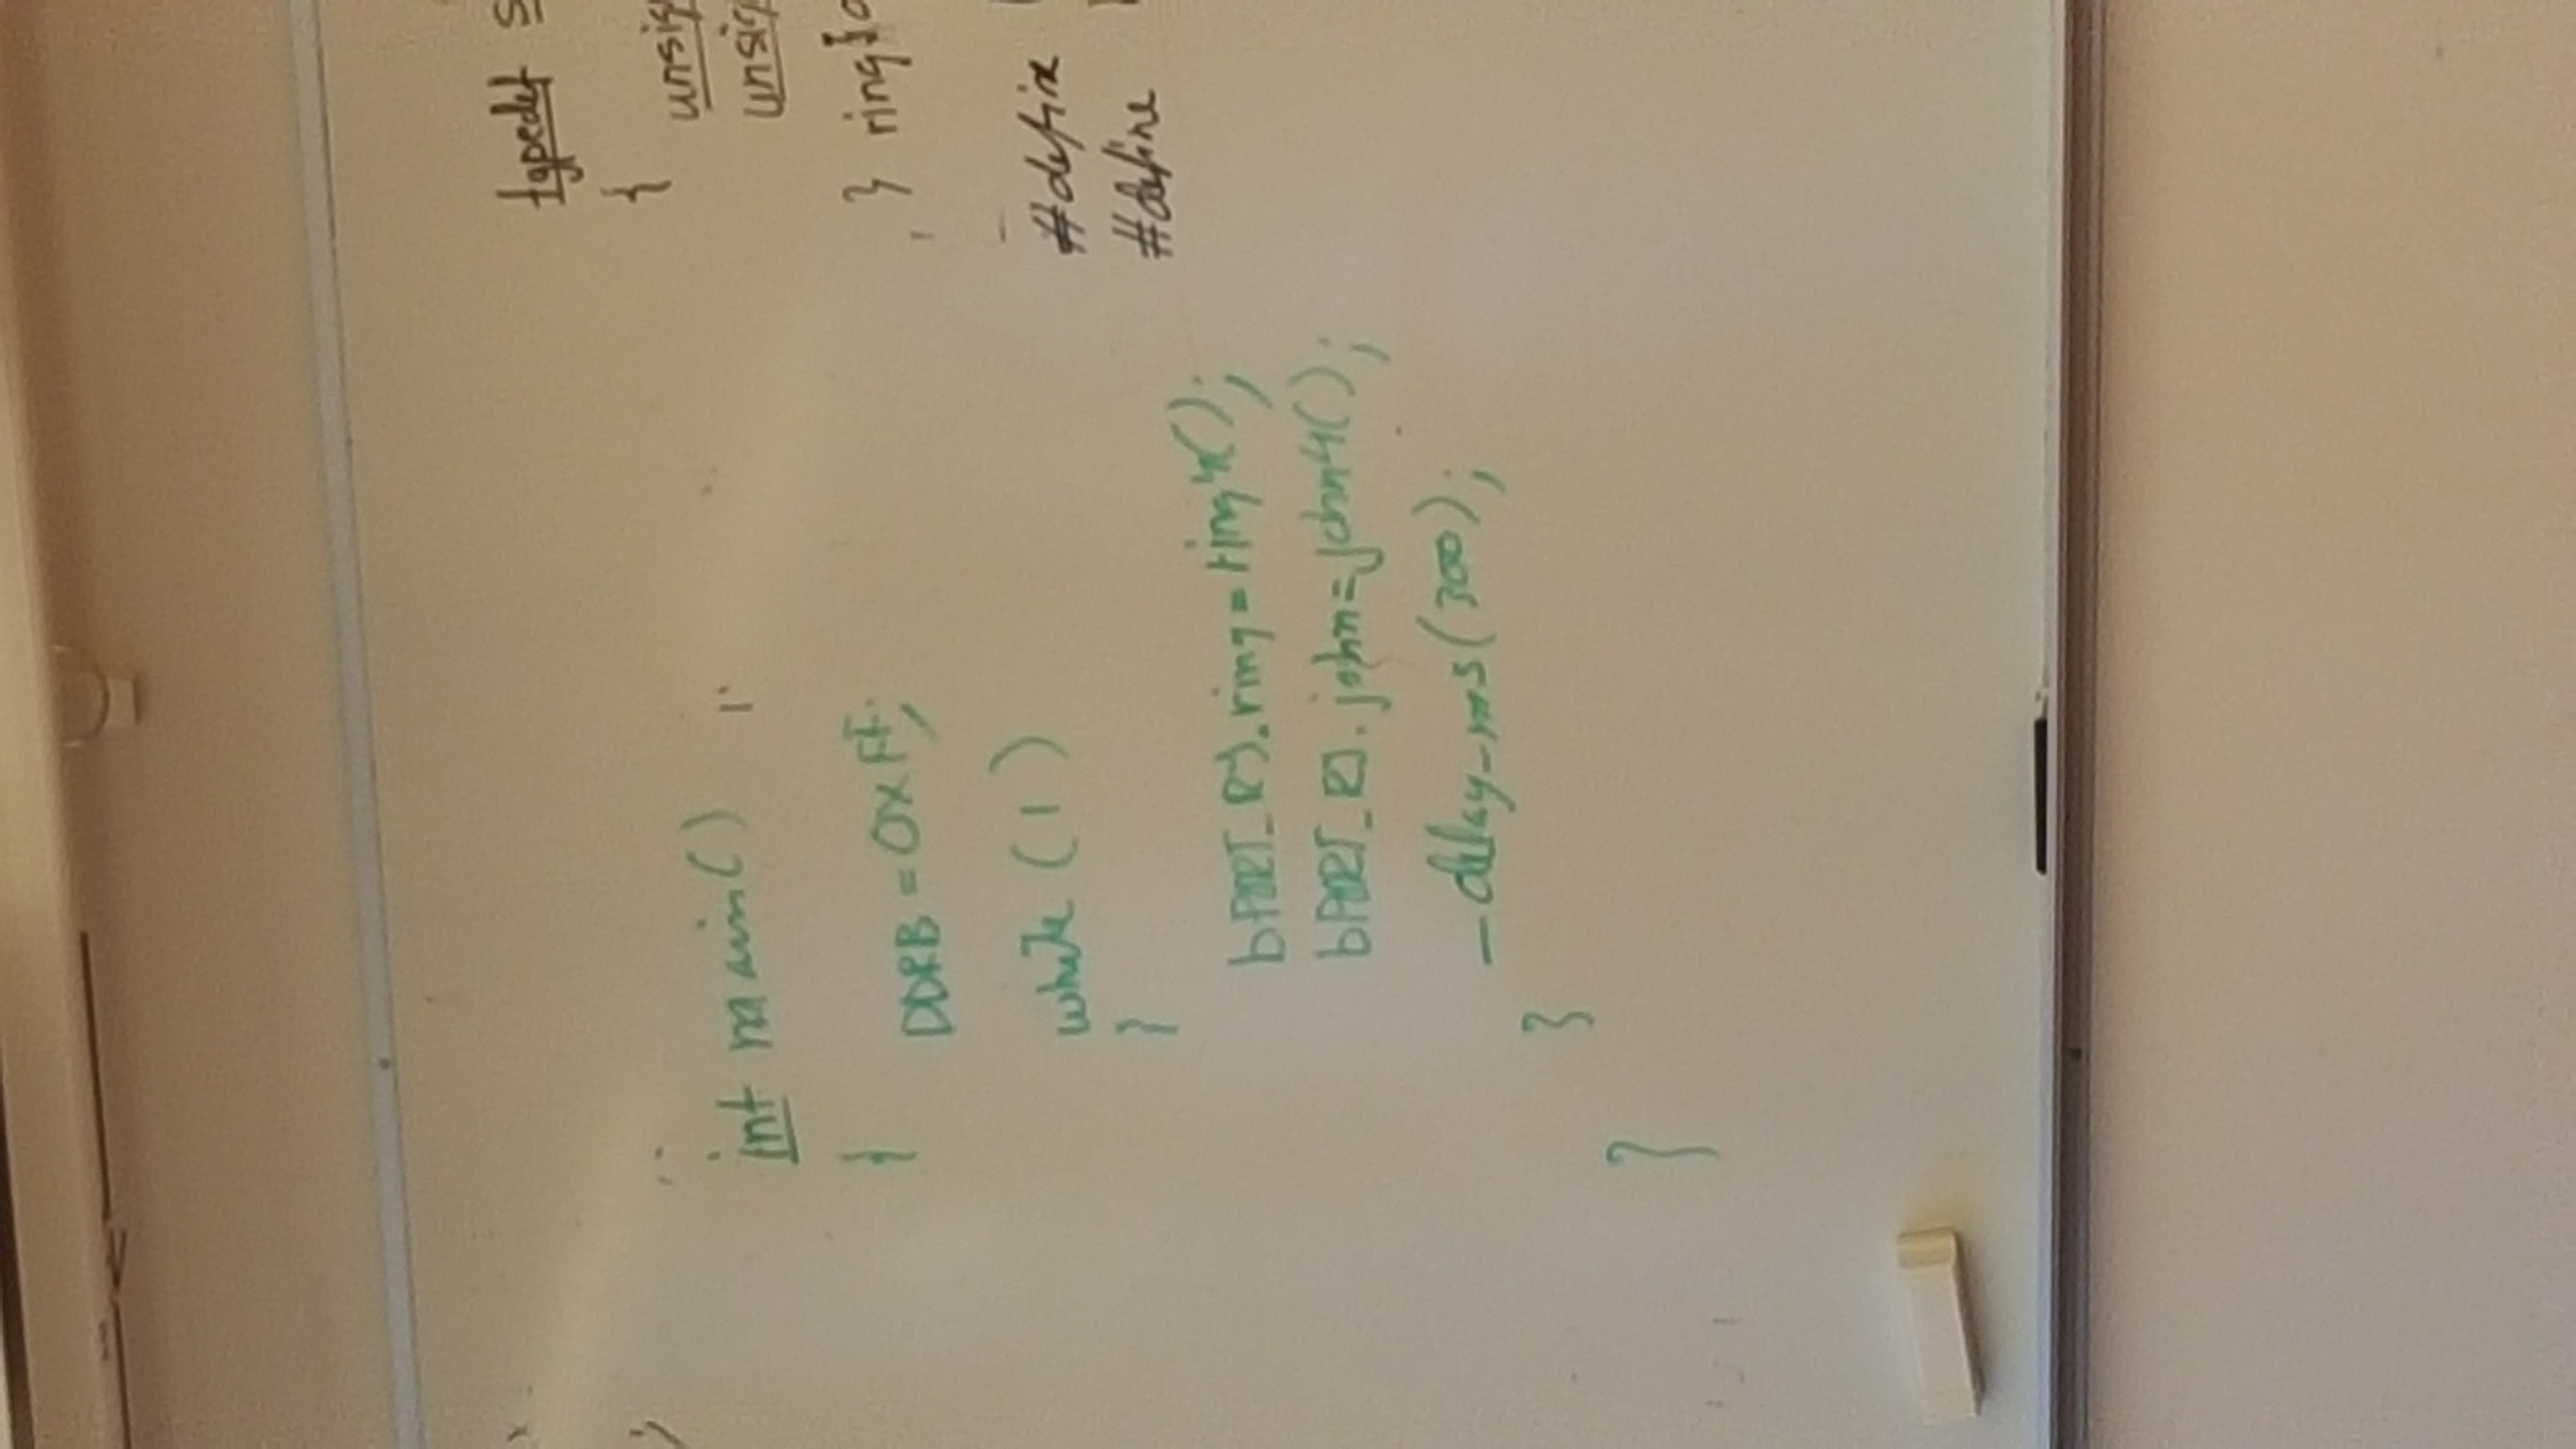 int main()
{
DDRB = 0xFF;
while (1)
{
bPORT_RJ.ring = ring4();
bPORT_RJ.john = john4();
_delay_ms(300);
}
}
typedef s
{
unsig
unsig
} ring
#define
#define